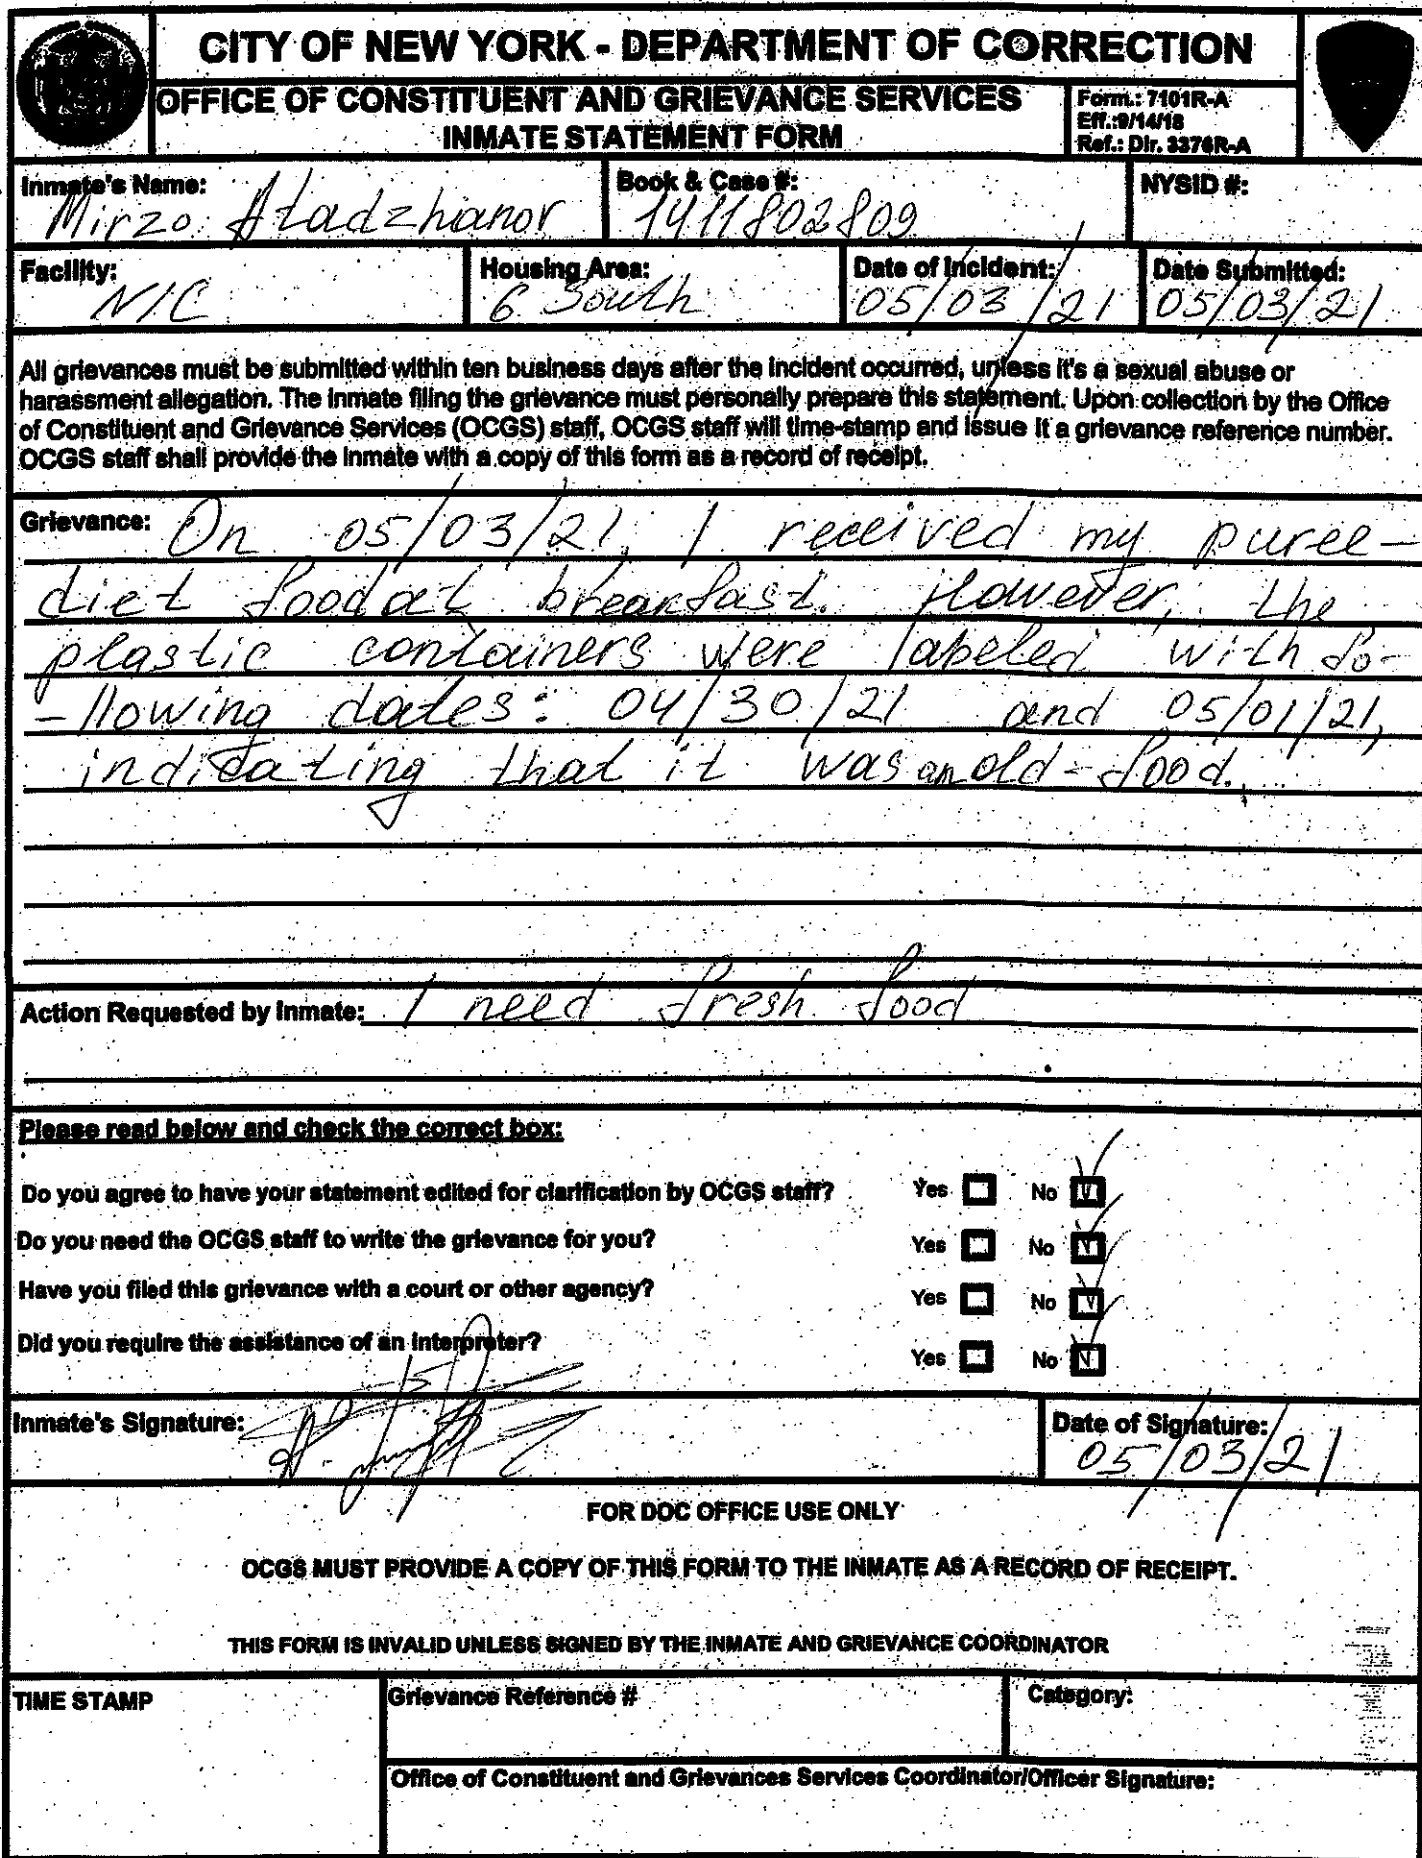 CITY OF NEW YORK - DEPARTMENT OF CORRECTION
OFFICE OF CONSTITUENT AND GRIEVANCE SERVICES
INMATE STATEMENT FORM
Form.: 7101R-A
Eff.:9/14/18
Ref.: Dir. 3376R-A
Inmate's Name:
Mirzo Atadzhanov
Book & Case #:
1411802809
NYSID #:
Facility:
NIC
Housing Area:
6 South
Date of Incident:
05/03/21
Date Submitted:
05/03/21
All grievances must be submitted within ten business days after the incident occurred, unless it's a sexual abuse or
harassment allegation. The inmate filing the grievance must personally prepare this statement. Upon collection by the Office
of Constituent and Grievance Services (OCGS) staff, OCGS staff will time-stamp and issue it a grievance reference number.
OCGS staff shall provide the inmate with a copy of this form as a record of receipt.
Grievance: On 05/03/21, I received my puree-
diet food at breakfast. However, the
plastic containers were labeled with fo-
-llowing dates: 04/30/21 and 05/01/21,
indicating that it was an old-food.
Action Requested by Inmate: I need fresh food
Please read below and check the correct box:
Do you agree to have your statement edited for clarification by OCGS staff? Yes No
Do you need the OCGS staff to write the grievance for you? Yes No
Have you filed this grievance with a court or other agency? Yes No
Did you require the assistance of an interpreter? Yes No
Inmate's Signature:
Date of Signature:
05/03/21
FOR DOC OFFICE USE ONLY
OCGS MUST PROVIDE A COPY OF THIS FORM TO THE INMATE AS A RECORD OF RECEIPT.
THIS FORM IS INVALID UNLESS SIGNED BY THE INMATE AND GRIEVANCE COORDINATOR
TIME STAMP
Grievance Reference #
Category:
Office of Constituent and Grievances Services Coordinator/Officer Signature: